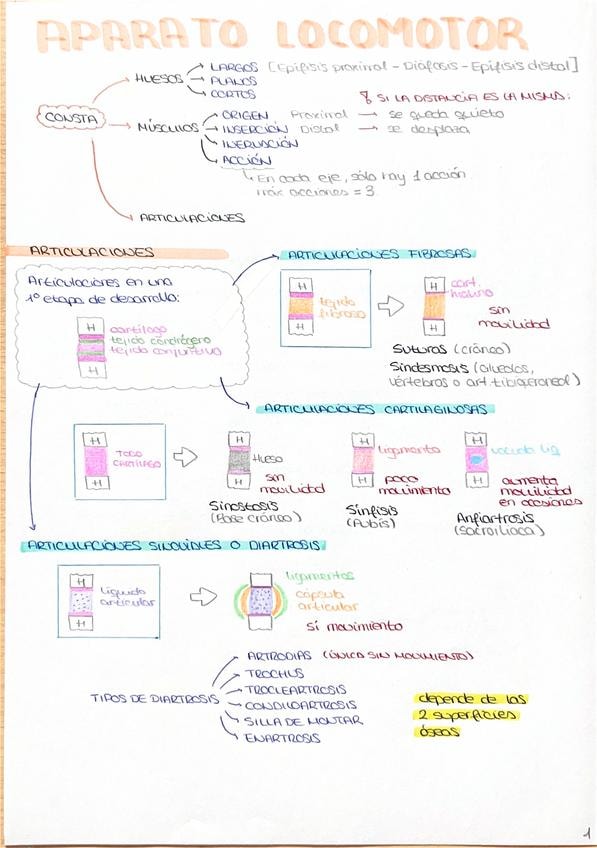 APARATO LOCOMOTOR
CONSTA
HUESOS
LARGOS [Epífisis proximal - Diáfisis - Epífisis distal]
PLANOS
CORTOS
SI LA DISTANCIA ES LA MISMA:
MÚSCULOS
ORIGEN Proximal → se queda quieto
INSERCIÓN Distal → se desplaza
INERVACIÓN
ACCIÓN
En cada eje, sólo hay 1 acción
máx acciones = 3
ARTICULACIONES
ARTICULACIONES
Articulaciones en una
1º etapa de desarrollo:
H
cartílago
tejido condrógeno
tejido conjuntivo
H
ARTICULACIONES FIBROSAS
H
tejido
fibroso
H
H
cart.
hialino
H
sin
movilidad
Suturas (cráneo)
Sindesmosis (alveolos,
vértebras o art tibioperoneal)
ARTICULACIONES CARTILAGINOSAS
H
TODO
CARTÍLAGO
H
H
HUESO
H
sin
movilidad
Sinostosis
(Base cráneo)
H
ligamento
H
poco
movimiento
Sínfisis
(Pubis)
H
H
aumenta
movilidad
en ocasiones
Anfiartrosis
(sacroilíaca)
ARTICULACIONES SINOVIALES O DIARTROSIS
H
líquido
articular
H
ligamentos
cápsula
articular
sí movimiento
TIPOS DE DIARTROSIS
ARTRODIAS (ÚNICA SIN MOVIMIENTO)
TROCHUS
TROCLEARTROSIS
CONDILOARTROSIS
SILLA DE MONTAR
ENARTROSIS
depende de las
2 superficies
óseas
1